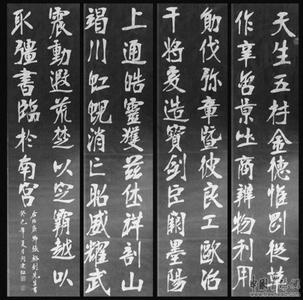 天生五材金德惟剛從革
作辛含景吐商辨物利用
勛伐弥章暨彼良工歐冶
干將爰造寶劍巨闕墨陽
上通皓靈獲茲休祥剖山
竭川虹蜺消亡昭威耀武
震動遐荒楚以定霸越以
取彊書臨於南宮